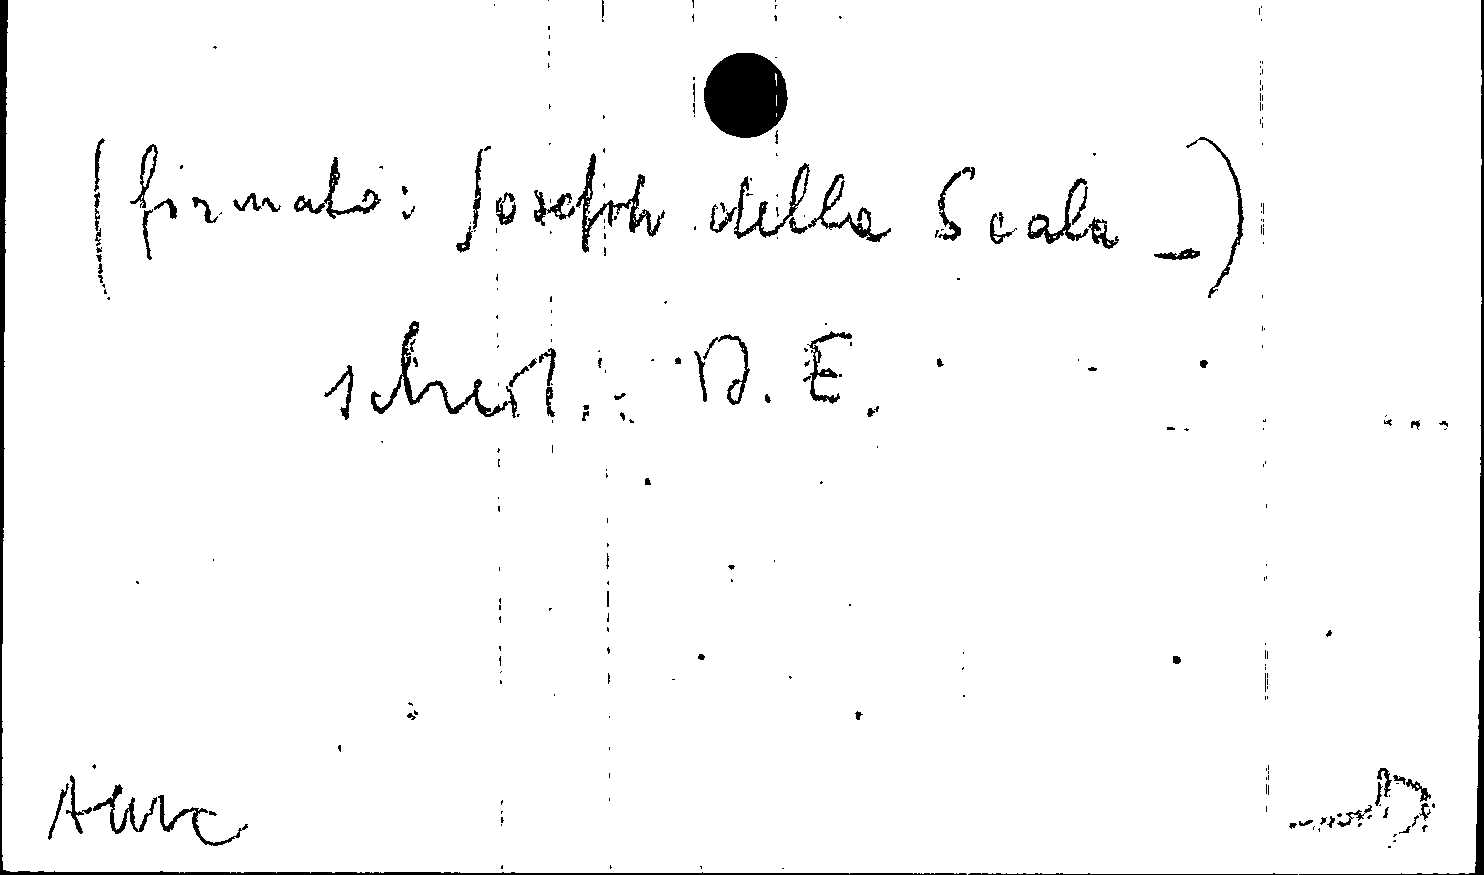 (firmato: Joseph della Scala _)
sched.: D. E.